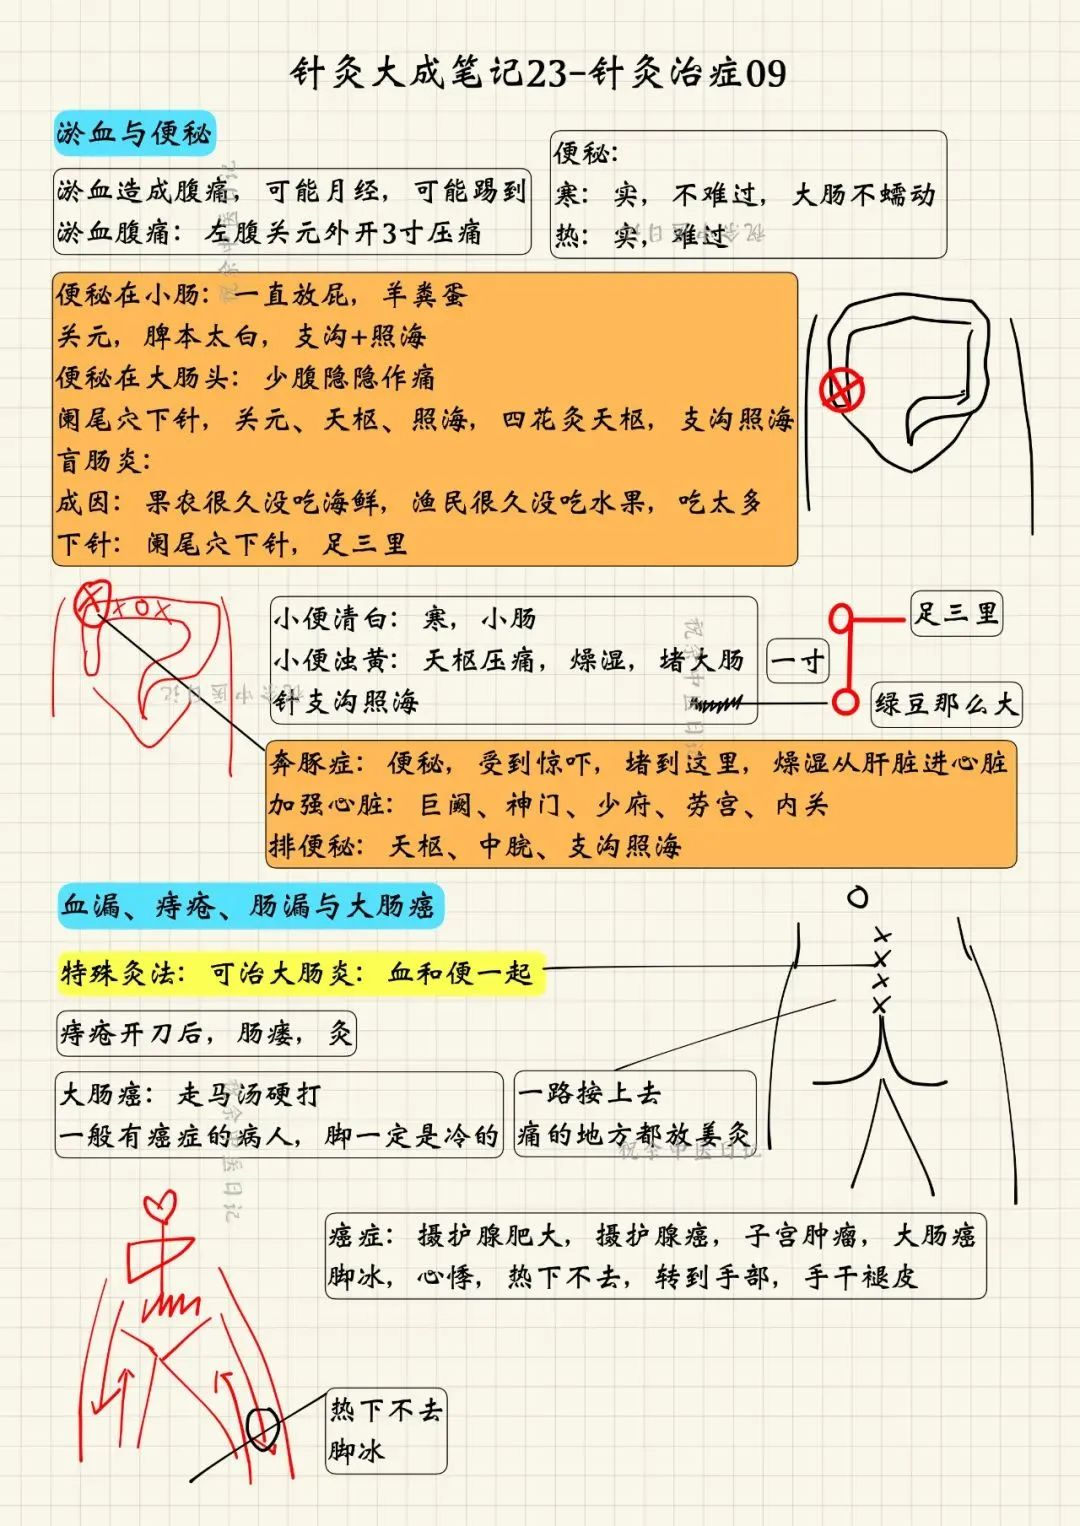 针灸大成笔记23-针灸治症09
淤血与便秘
淤血造成腹痛，可能月经，可能踢到
淤血腹痛：左腹关元外开3寸压痛
便秘：
寒：实，不难过，大肠不蠕动
热：实，难过
便秘在小肠：一直放屁，羊粪蛋
关元，脾本太白，支沟+照海
便秘在大肠头：少腹隐隐作痛
阑尾穴下针，关元、天枢、照海，四花灸天枢，支沟照海
盲肠炎：
成因：果农很久没吃海鲜，渔民很久没吃水果，吃太多
下针：阑尾穴下针，足三里
小便清白：寒，小肠
小便浊黄：天枢压痛，燥湿，堵大肠
针支沟照海
一寸
足三里
绿豆那么大
奔豚症：便秘，受到惊吓，堵到这里，燥湿从肝脏进心脏
加强心脏：巨阙、神门、少府、劳宫、内关
排便秘：天枢、中脘、支沟照海
血漏、痔疮、肠漏与大肠癌
特殊灸法：可治大肠炎：血和便一起
痔疮开刀后，肠瘘，灸
大肠癌：走马汤硬打
一般有癌症的病人，脚一定是冷的
一路按上去
痛的地方都放姜灸
癌症：摄护腺肥大，摄护腺癌，子宫肿瘤，大肠癌
脚冰，心悸，热下不去，转到手部，手干褪皮
热下不去
脚冰
祝余中医日记
祝余中医日记
祝余中医日记
祝余中医日记
祝余中医日记
祝余中医日记